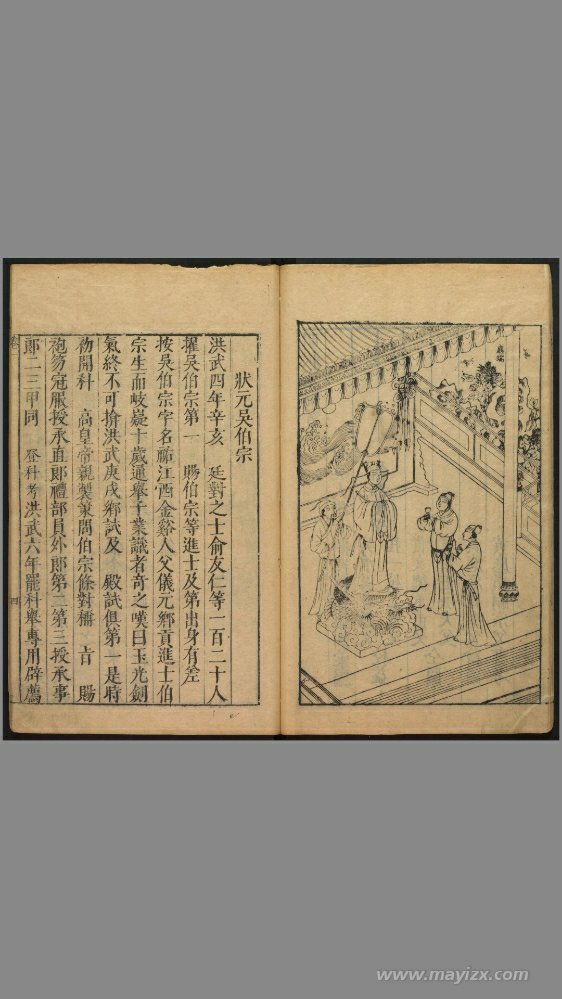 狀元吳伯宗
洪武四年辛亥 廷對之士俞友仁等一百二十人
擢吳伯宗第一 賜伯宗等進士及第出身有差
按吳伯宗字名祐江西金谿人父儀元鄉貢進士伯
宗生而岐嶷十歲通舉子業識者奇之嘆曰玉光劍
氣終不可揜洪武庚戌鄉試及 殿試俱第一是時
初開科 高皇帝親製策問伯宗條對稱 旨 賜
袍笏冠服授承直郎禮部員外郎第二第三授承事
郎二三甲同 登科考洪武六年罷科舉專用辟薦
四
www.mayizx.com